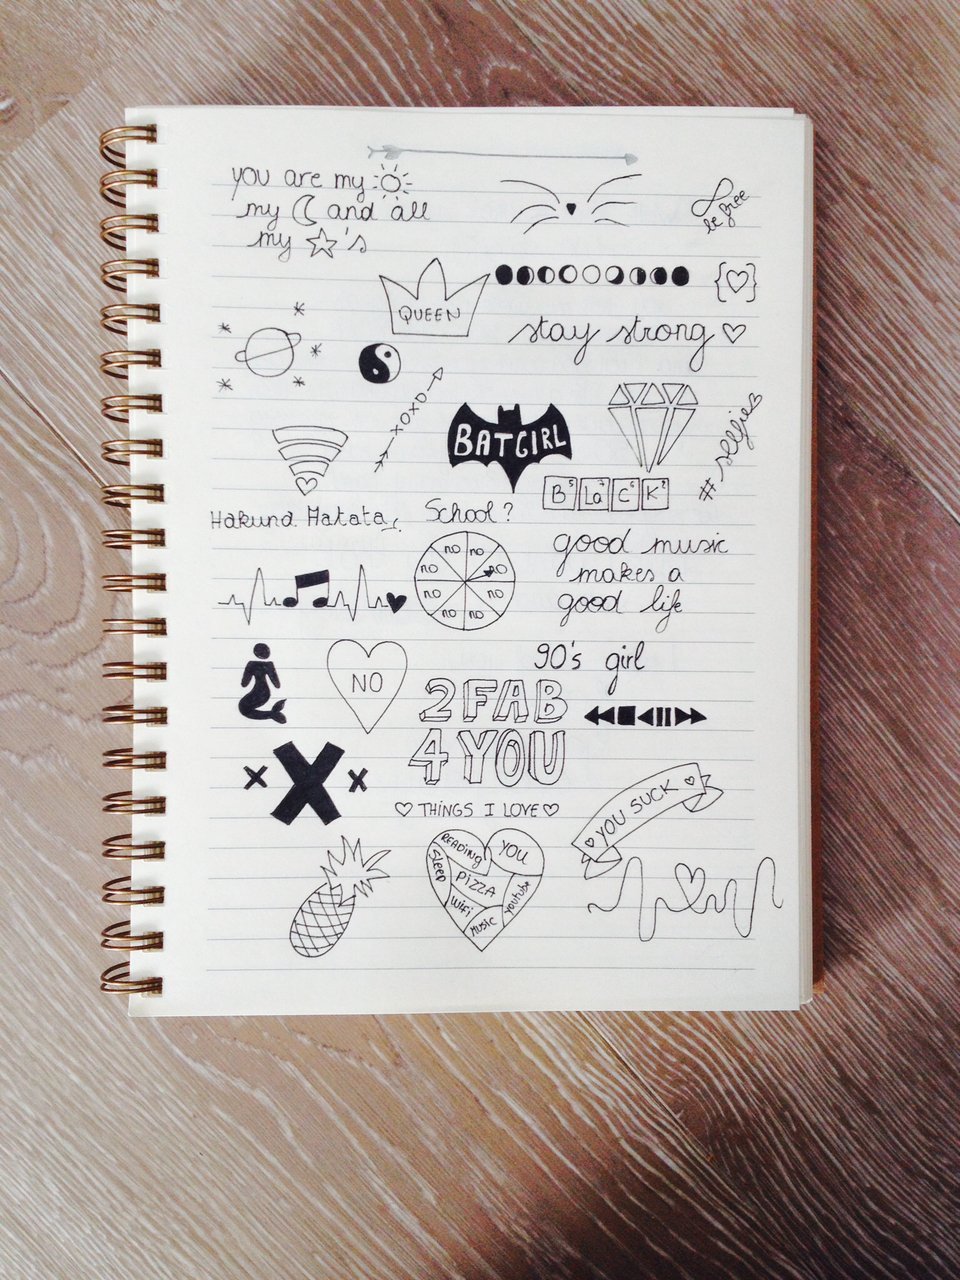 you are my
my and all
my 's
be free
QUEEN
stay strong
XOXO
BATGIRL
# selfie
B L a C K
Hakuna Matata
School?
NO NO NO NO NO NO NO NO
good music
makes a
good life
90's girl
NO
2 FAB
4 YOU
THINGS I LOVE
YOU SUCK
READING
YOU
SLEEP
PIZZA
WiFi
youtube
MUSIC